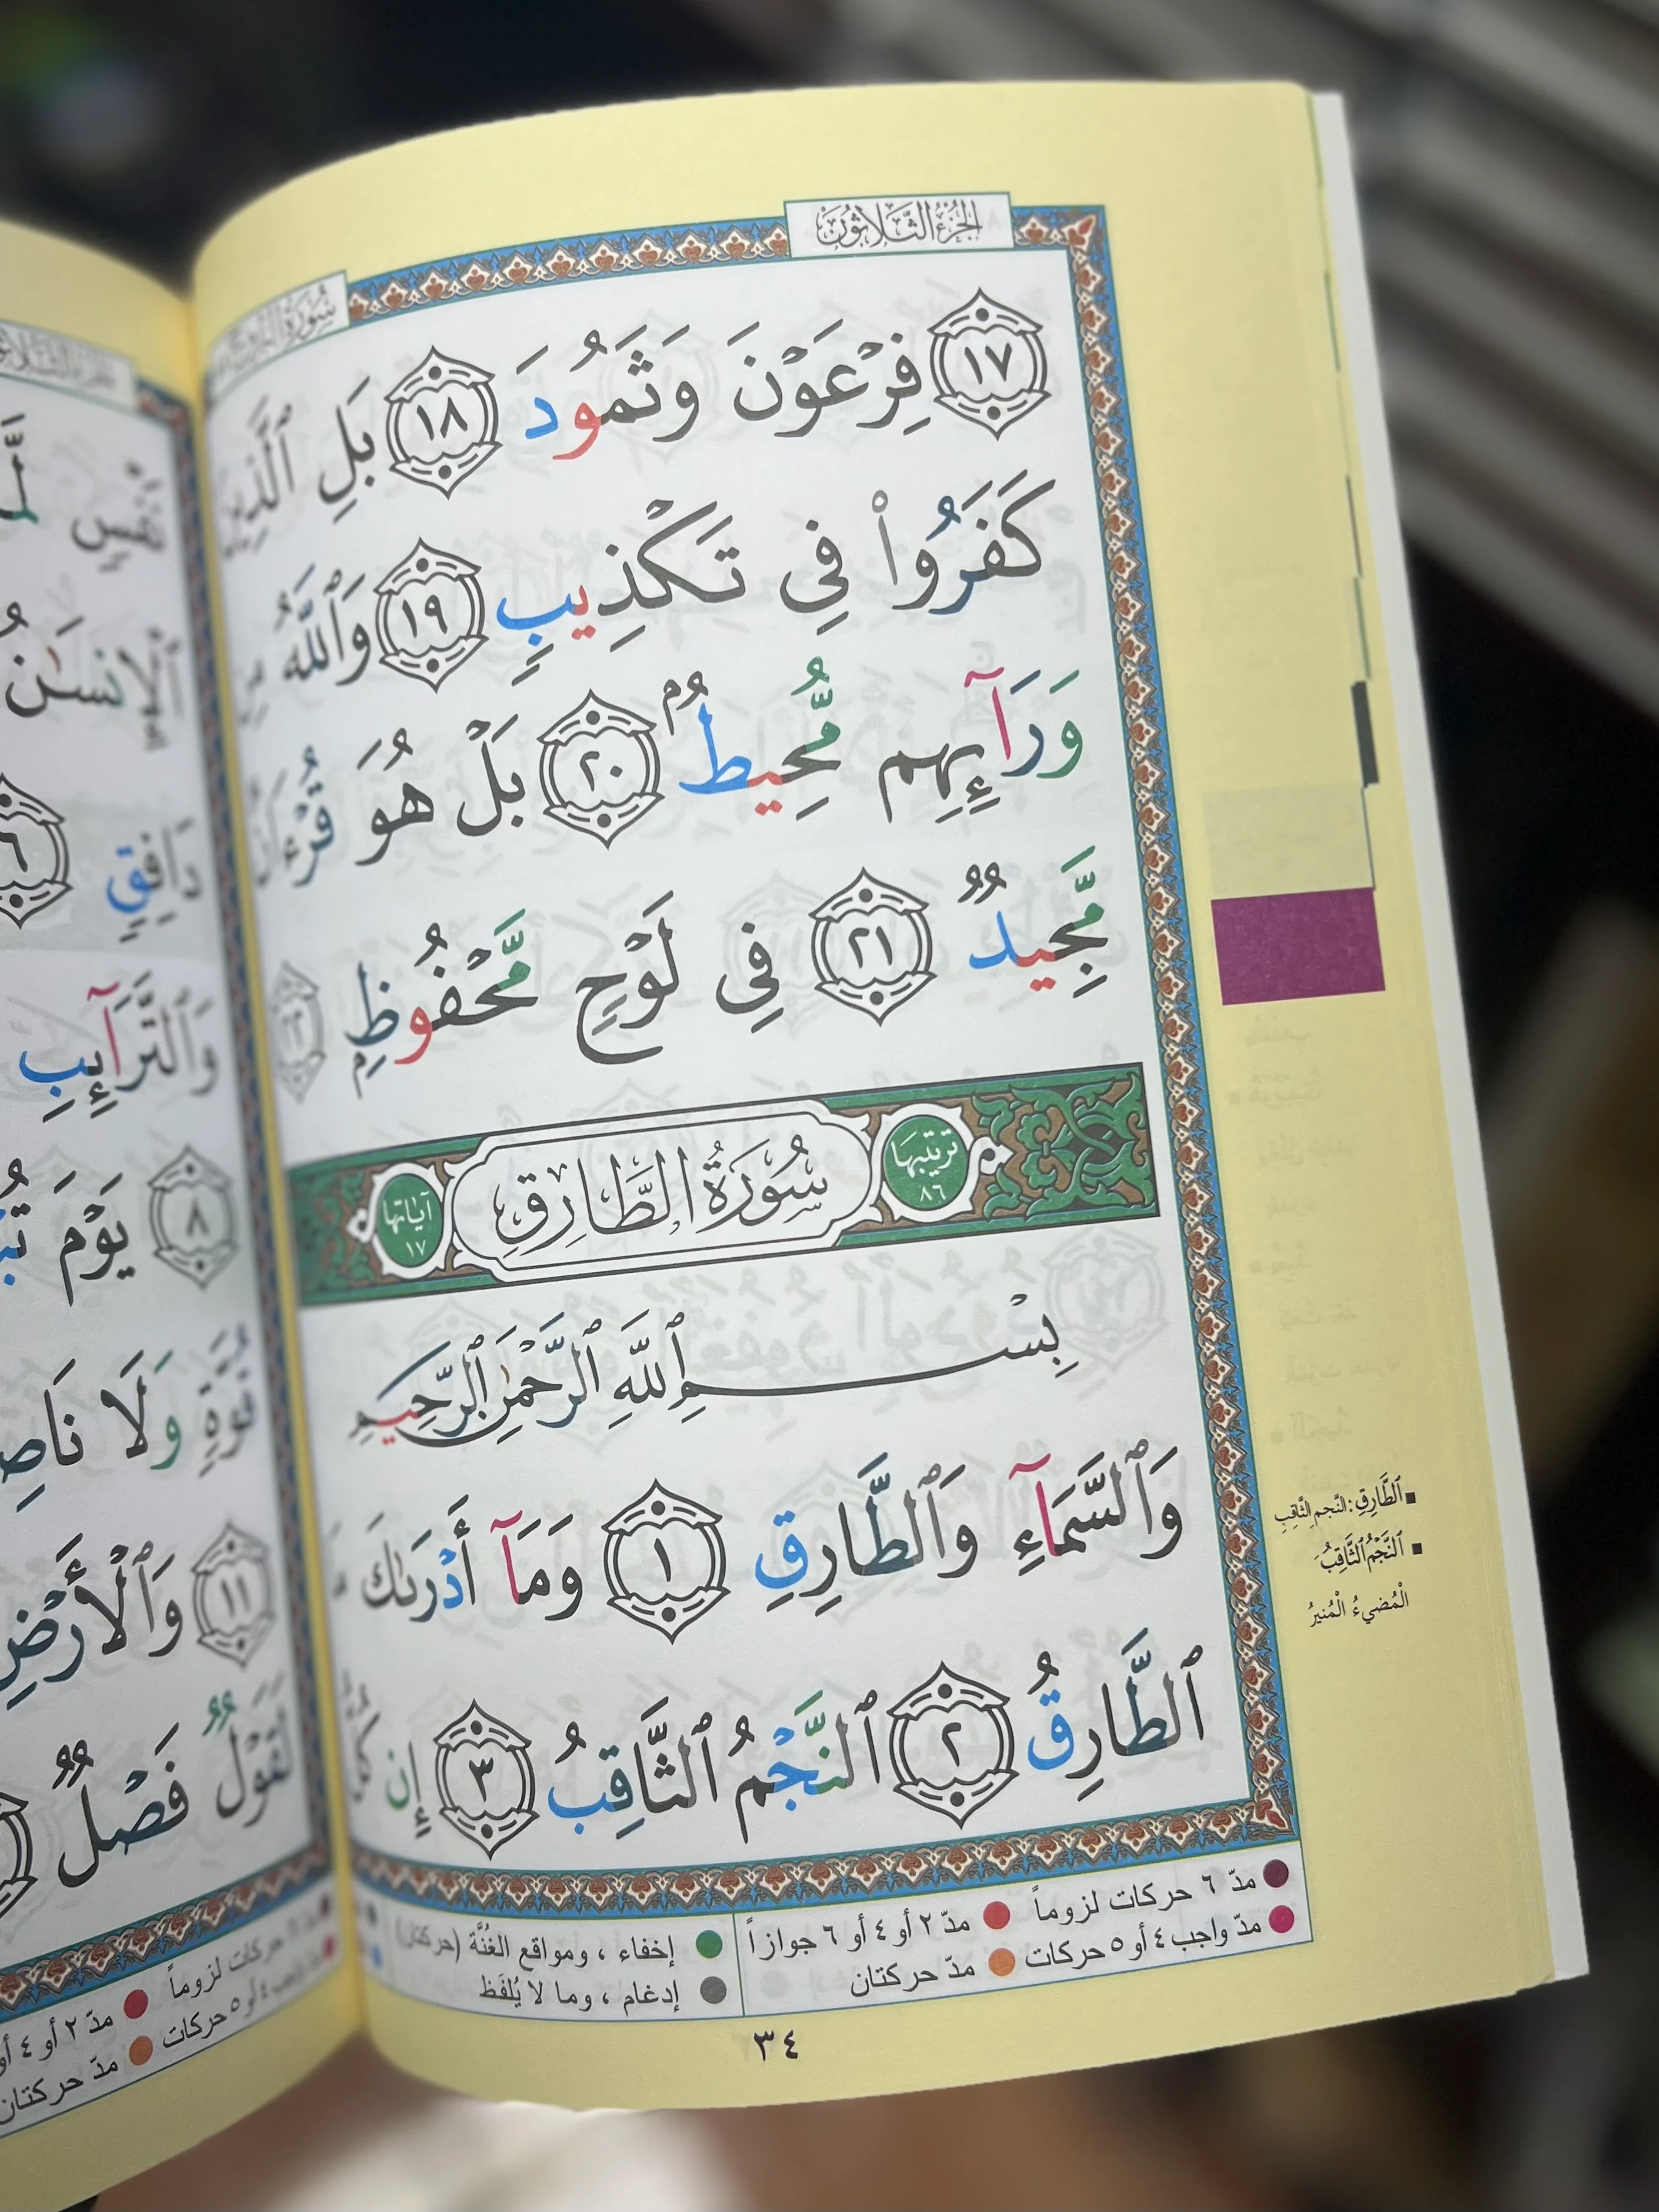 الجزء الثلاثون
سورة البروج
۝١٧ فِرْعَوْنَ وَثَمُودَ ۝١٨ بَلِ ٱلَّذِينَ
كَفَرُوا۟ فِى تَكْذِيبٍ ۝١٩ وَٱللَّهُ مِن
وَرَآئِهِم مُّحِيطٌۢ ۝٢٠ بَلْ هُوَ قُرْءَانٌ
مَّجِيدٌ ۝٢١ فِى لَوْحٍ مَّحْفُوظٍۭ ۝٢٢
ترتيبها ٨٦ سُورَةُ الطَّارِقِ آياتها ١٧
بِسْمِ ٱللَّهِ ٱلرَّحْمَٰنِ ٱلرَّحِيمِ
وَٱلسَّمَآءِ وَٱلطَّارِقِ ۝١ وَمَآ أَدْرَىٰكَ مَا
ٱلطَّارِقُ ۝٢ ٱلنَّجْمُ ٱلثَّاقِبُ ۝٣ إِن كُلُّ
■ ٱلطَّارِقِ: النَّجم الثَّاقِبِ
■ ٱلنَّجْمُ ٱلثَّاقِبُ
الْمُضيءُ الْمُنيرُ
● مدّ ٦ حركات لزوماً ● مدّ ٢ أو ٤ أو ٦ جوازاً
● مدّ واجب ٤ أو ٥ حركات ● مدّ حركتان
● إخفاء ، ومواقع الغُنَّة (حركتان)
● إدغام ، وما لا يُلفَظ
٣٤
ٱلْإِنسَٰنُ
دَافِقٍ ٦
وَٱلتَّرَآئِبِ
٨ يَوْمَ
قُوَّةٍ وَلَا
١١ وَٱلْأَرْضِ
لَقَوْلٌ فَصْلٌ
● مدّ ٦ حركات لزوماً ● مدّ ٢ أو ٤ أو
● مدّ واجب ٤ أو ٥ حركات ● مدّ حركتان